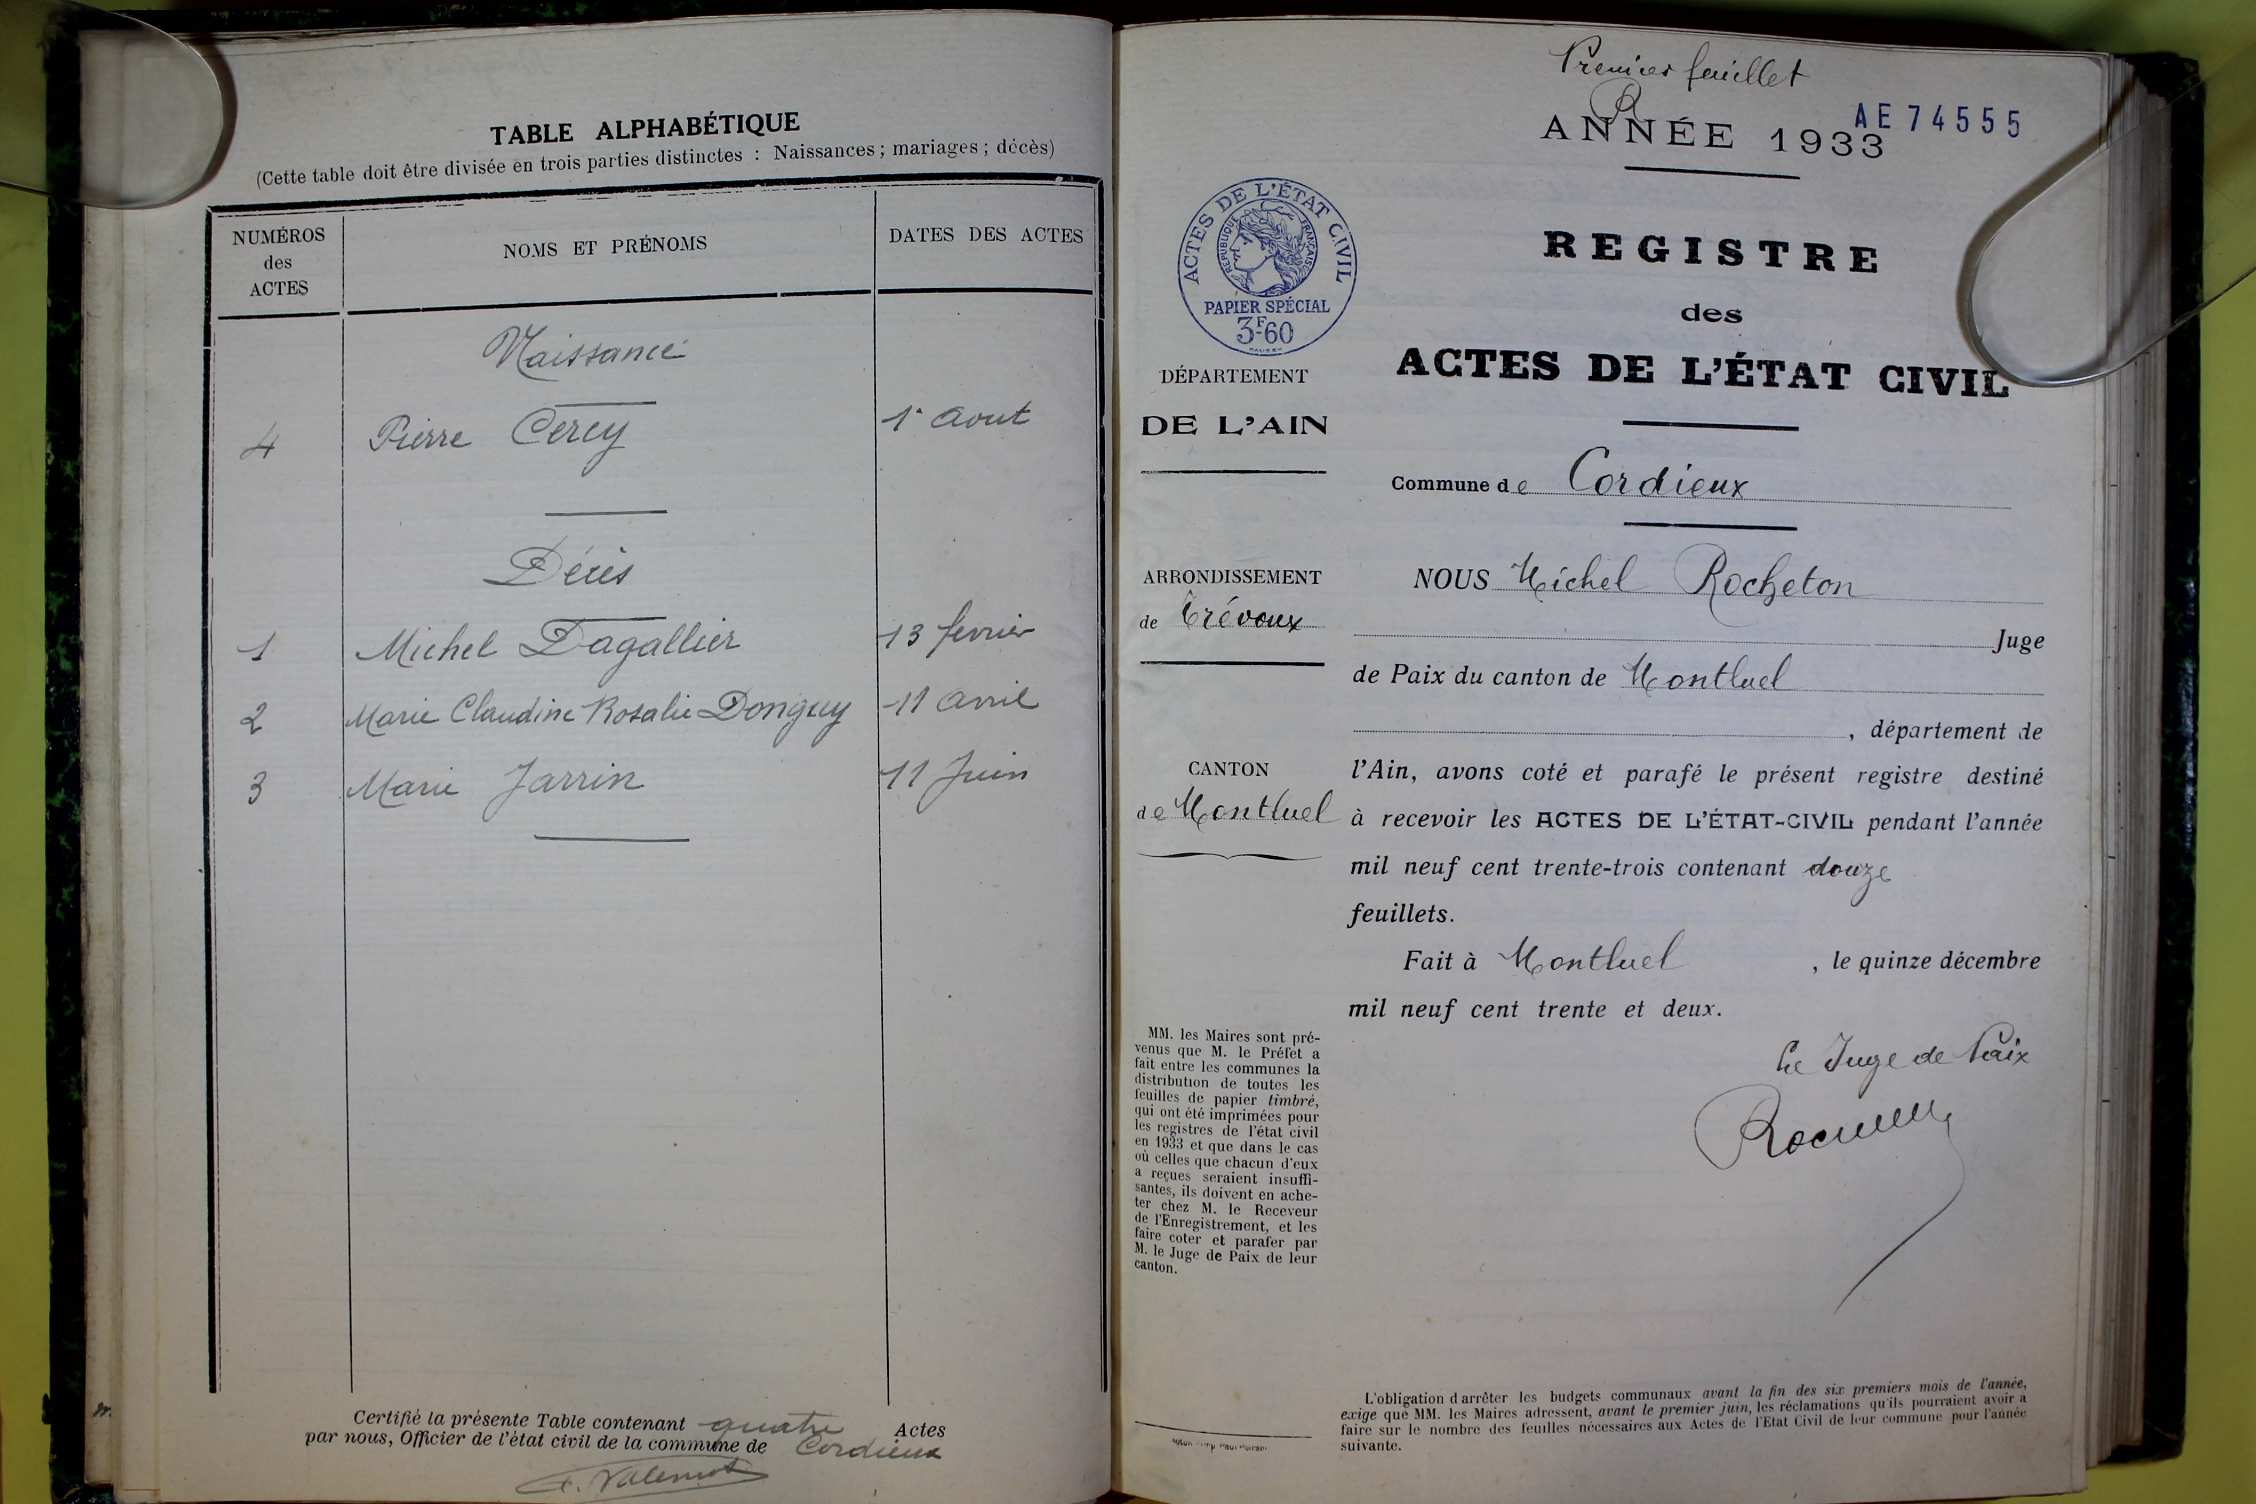 TABLE ALPHABÉTIQUE
(Cette table doit être divisée en trois parties distinctes : Naissances ; mariages ; décès)
NUMÉROS
des
ACTES
NOMS ET PRÉNOMS
DATES DES ACTES
Naissance
4 Pierre Cerey 1r Aout
Décès
1 Michel Dagallier 13 fevrier
2 Marie Claudine Rosalie Donguy 11 avril
3 Marie Jarrin 11 Juin
Certifié la présente Table contenant quatre Actes
par nous, Officier de l'état civil de la commune de Cordieux
Premier feuillet
R
AE 74555
ANNÉE 1933
ACTES DE L'ÉTAT CIVIL
RÉPUBLIQUE FRANÇAISE
PAPIER SPÉCIAL
3F60
REGISTRE
des
ACTES DE L'ÉTAT CIVIL
DÉPARTEMENT
DE L'AIN
Commune de Cordieux
ARRONDISSEMENT
de Trévoux
CANTON
de Montluel
NOUS Michel Rocheton
Juge
de Paix du canton de Montluel
, département de
l'Ain, avons coté et parafé le présent registre destiné
à recevoir les ACTES DE L'ÉTAT-CIVIL pendant l'année
mil neuf cent trente-trois contenant douze
feuillets.
Fait à Montluel , le quinze décembre
mil neuf cent trente et deux.
Le Juge de Paix
MM. les Maires sont pré-
venus que M. le Préfet a
fait entre les communes la
distribution de toutes les
feuilles de papier timbré,
qui ont été imprimées pour
les registres de l'état civil
en 1933 et que dans le cas
où celles que chacun d'eux
a reçues seraient insuffi-
santes, ils doivent en ache-
ter chez M. le Receveur
de l'Enregistrement, et les
faire coter et parafer par
M. le Juge de Paix de leur
canton.
L'obligation d'arrêter les budgets communaux avant la fin des six premiers mois de l'année,
exige que MM. les Maires adressent, avant le premier juin, les réclamations qu'ils pourraient avoir à
faire sur le nombre des feuilles nécessaires aux Actes de l'Etat Civil de leur commune pour l'année
suivante.